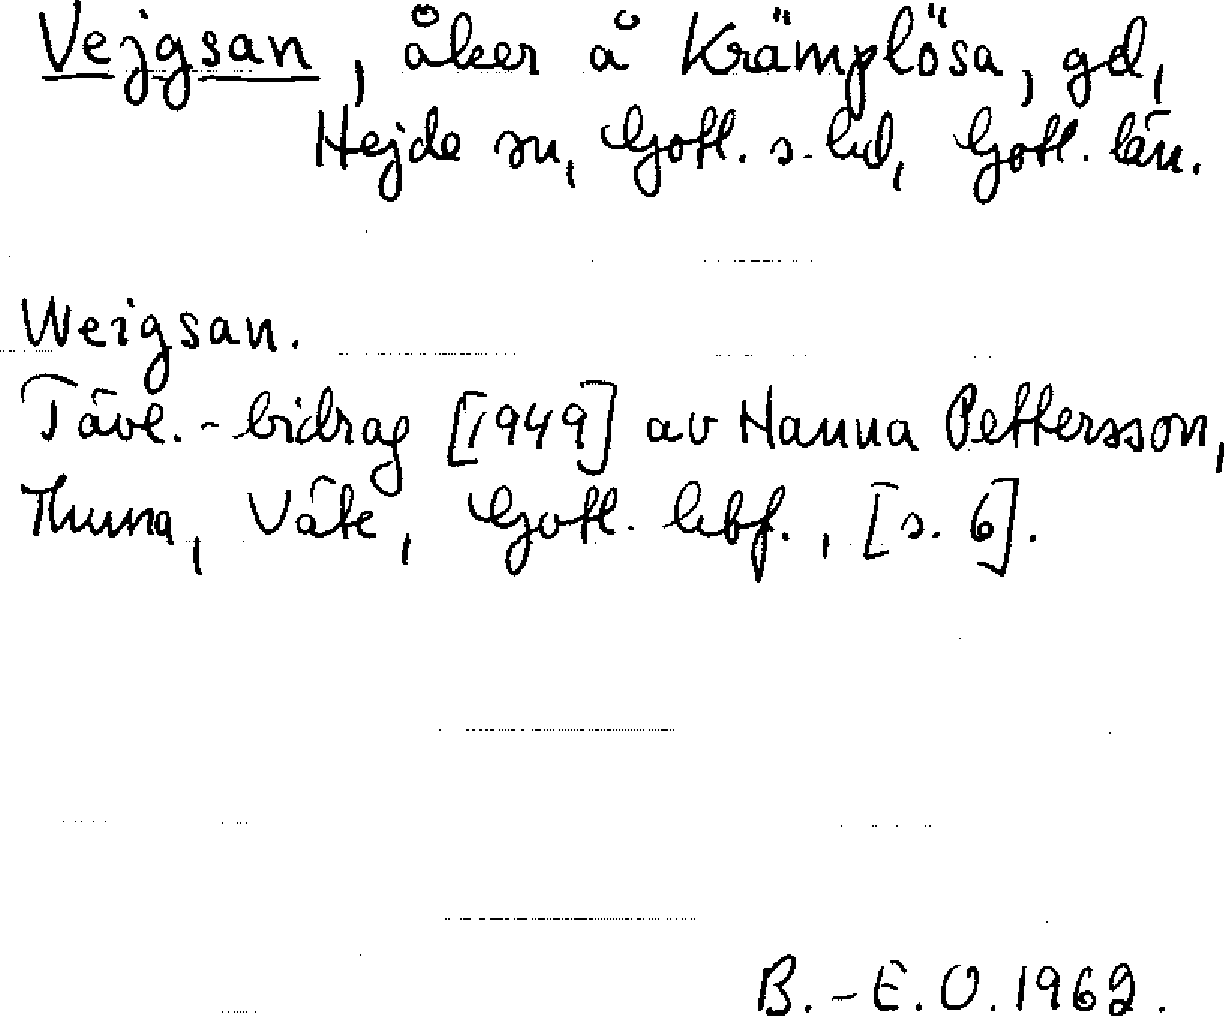 Vejgsan, åker å Krämplösa, gd,
Hejde sn, Gotl. s. hd, Gotl. län.
Weigsan.
Tävl.-bidrag [1949] av Hanna Pettersson,
Thuna, Väte, Gotl. hbf., [s. 6].
B.-E. O. 1962.